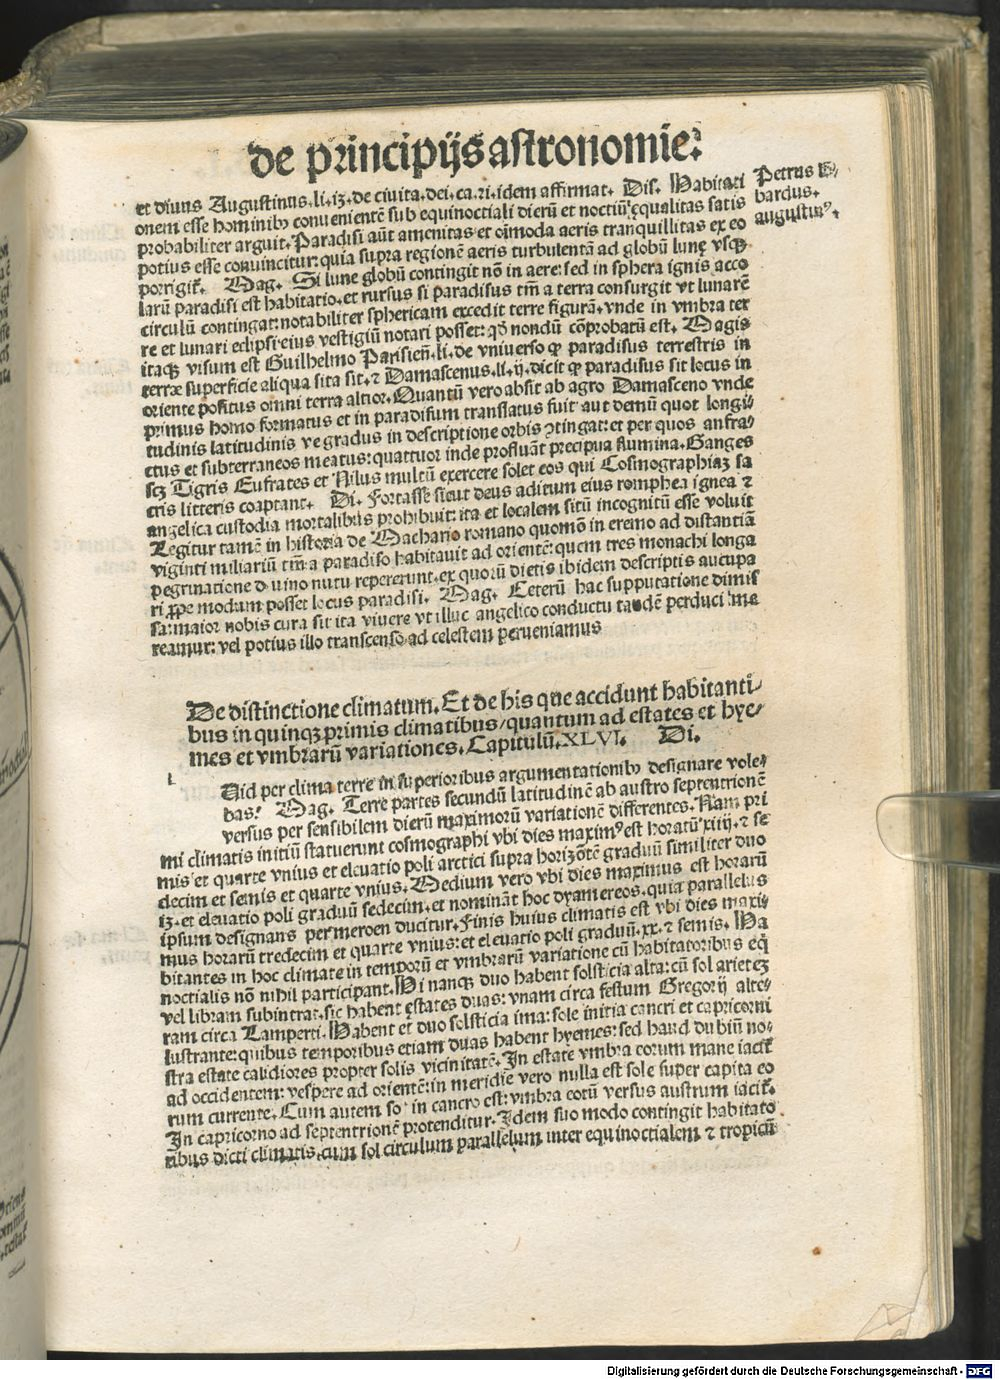 de principijs astronomie:
et diuus Augustinus.li.iꝫ.de ciuita.dei.ca.ri.idem affirmat. Dis. Habitati
onem esse hominibꝰ conuenientē sub equinoctiali dierū et noctiū equalitas satis
probabiliter arguit. Paradisi aūt amenitas et oīmoda aeris tranquillitas ex eo
potius esse conuincitur: quia supra regionē aeris turbulentā ad globū lunę vsqꝫ
porrigit᷑. Mag. Si lune globū contingit nō in aere: sed in sphera ignis acco
larū paradisi est habitatio. et rursus si paradisus tm̄ a terra consurgit vt lunarē
circulū contingat: notabiliter sphericam excedit terre figurā. vnde in vmbra ter
re et lunari eclipsi eius vestigiū notari posset: qđ nondū cōprobatū est. Magis
itaqꝫ visum est Guilhelmo Parisieñ.li.de vniuerso ꝙ paradisus terrestris in
terræ superficie aliqua sita sit. ⁊ Damascenus.li.ij.dicit ꝙ paradisus sit locus in
oriente positus omni terra altior. Quantū vero absit ab agro Damasceno vnde
primus homo formatus et in paradisum translatus fuit aut demū quot longi⸗
tudinis latitudinis ve gradus in descriptione orbis ↄtingat: et per quos anfra⸗
ctus et subterraneos meatus: quattuor inde profluāt precipua flumina. Ganges
scꝫ Tigris Eufrates et Nilus multū exercere solet eos qui Cosmographiaꝫ sa
cris litteris coaptant. Di. Fortasse sicut deus aditum eius romphea ignea ⁊
angelica custodia mortalibus prohibuit: ita et localem sitū incognitū esse voluit
Legitur tamē in historia de Machario romano quomō in eremo ad distantiā
viginti miliariū tm̄ a paradiso habitauit ad orientē: quem tres monachi longa
pegrinatione diuino nutu repererunt. ex quorū dietis ibidem descriptis aucupa
ri ꝓpe modum posset locus paradisi. Mag. Ceterū hac supputatione dimis
sa: maior nobis cura sit ita viuere vt illuc angelico conductu tandē perduci me
reamur: vel potius illo transcenso ad celestem perueniamus
Petrus Lō⸗
bardus.
augustinꝰ.
De distinctione climatum. Et de his que accidunt habitanti⸗
bus in quinqꝫ primis climatibus/quantum ad estates et hye⸗
mes et vmbrarū variationes. Capitulū.XLVI. Di.
Qid per clima terre in superioribus argumentationibꝰ designare vole⸗
bas? Mag. Terre partes secundū latitudinē ab austro septentrionē
versus per sensibilem dierū maximorū variationē differentes. Nam pri
mi climatis initiū statuerunt cosmographi vbi dies maximꝰ est horatū xiiij. ⁊ se
mis et quarte vnius et eleuatio poli arctici supra horizōtē graduū similiter duo
decim et semis et quarte vnius. Medium vero vbi dies maximus est horarū
iꝫ. et eleuatio poli graduū sedecim. et nomināt hoc dyameroes. quia parallelus
ipsum designans per meroen ducitur. Finis huius climatis est vbi dies maxi⸗
mus horarū tredecim et quarte vnius: et eleuatio poli graduū.xx. ⁊ semis. Ha
bitantes in hoc climate in temporū et vmbrarū variatione cū habitatoribus eq̄
noctialis nō nihil participant. Hi nanqꝫ duo habent solsticia alta: cū sol arieteꝫ
vel libram subintrat. sic habent ęstates duas: vnam circa festum Gregorij alte⸗
ram circa Lamperti. Habent et duo solsticia ima: sole initia cancri et capricorni
lustrante: quibus temporibus etiam duas habent hyemes: sed haud dubiū no⸗
stra estate calidiores propter solis vicinitatē. In estate vmbra eorum mane iacit᷑
ad occidentem: vespere ad orientē: in meridie vero nulla est sole super capita eo
rum currente. Cum autem sol in cancro est: vmbra eorū versus austrum iacit᷑.
In capricorno ad septentrionē protenditur. Idem suo modo contingit habitato
ribus dicti climatis. cum sol circulum parallelum inter equinoctialem ⁊ tropicū
Digitalisierung gefördert durch die Deutsche Forschungsgemeinschaft - DFG